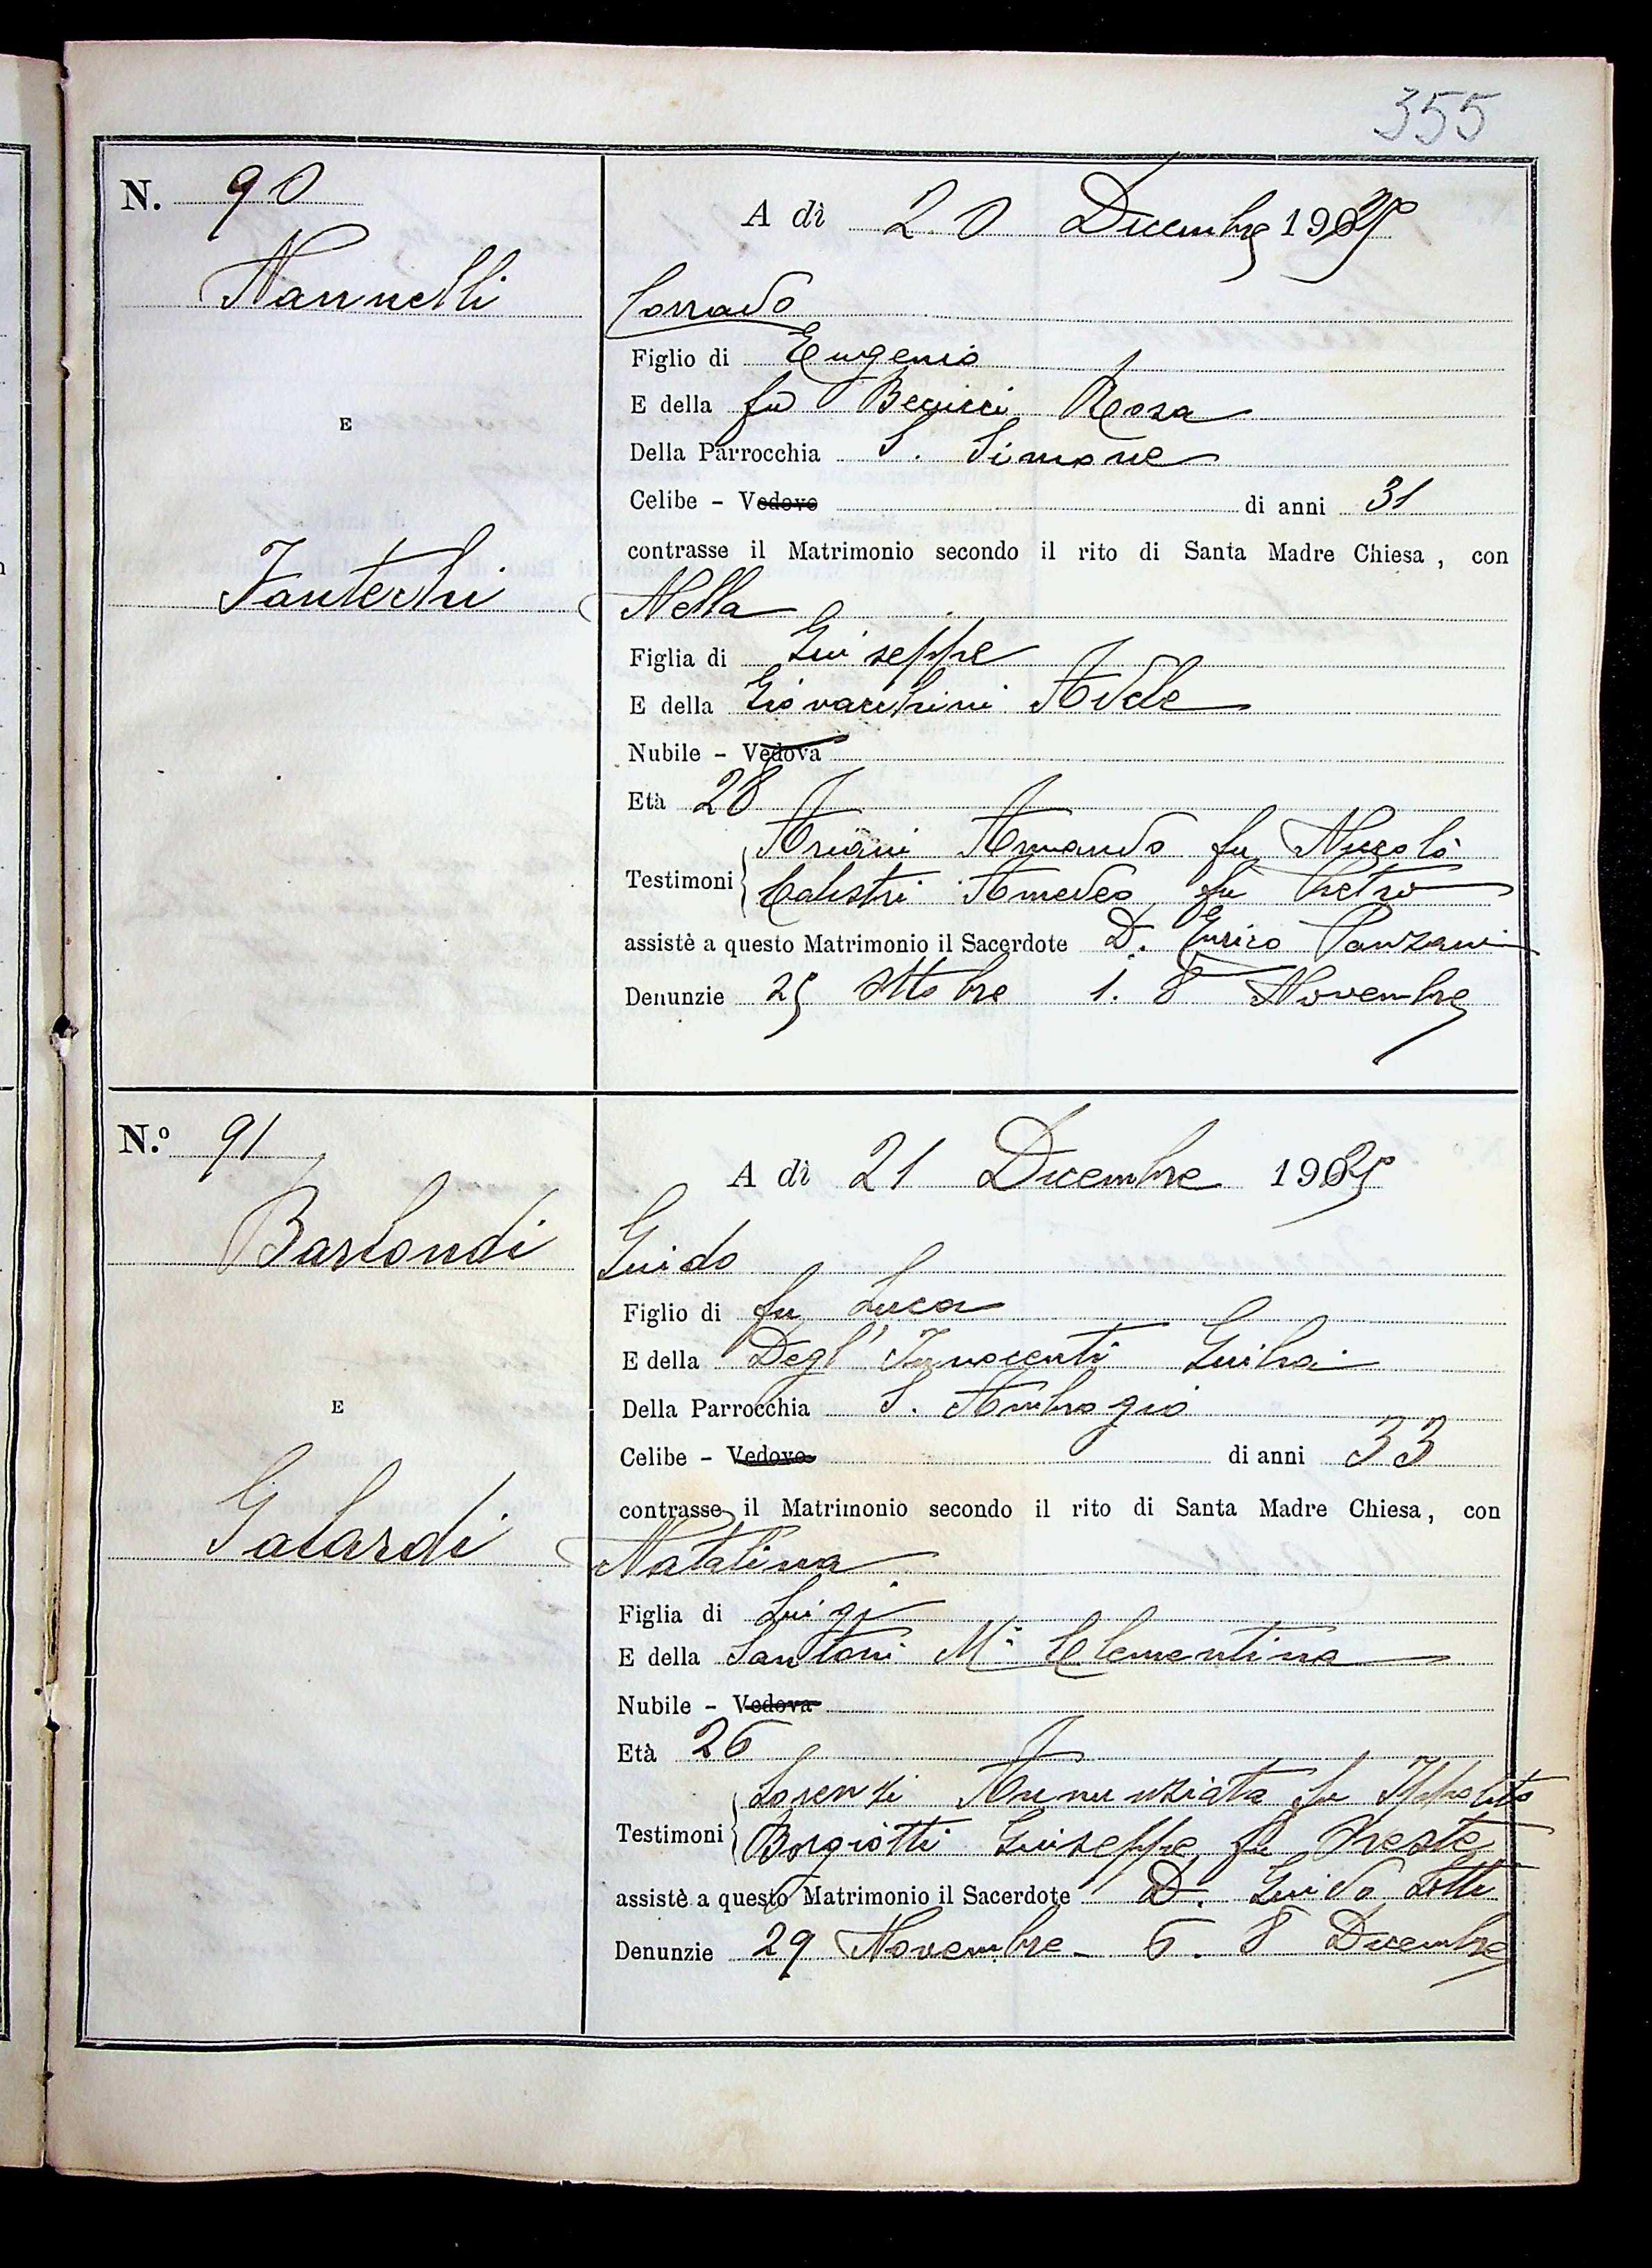 355
N. 90
A dì 20 Dicembre 1925
Nannelli
Corrado
Figlio di Eugenio
E della fu Rosa
E
Della Parrocchia S. Simone
Celibe - Vedovo di anni 31
contrasse il Matrimonio secondo il rito di Santa Madre Chiesa, con
Fantechi
Nella
Figlia di Giuseppe
E della Giovacchini Adele
Nubile - Vedova
Età 28
Ariani Armando fu Niccolò
Testimoni
Calistri Amedeo fu Pietro
assistè a questo Matrimonio il Sacerdote D. Enrico Panzani
Denunzie 25 Ottobre 1. 8 Novembre
N.º 91
A dì 21 Dicembre 1925
Bartondi
Guido
Figlio di fu Luca
E della Degl' Innocenti Giulia
E
Della Parrocchia S. Ambrogio
Celibe - Vedovo di anni 33
contrasse il Matrimonio secondo il rito di Santa Madre Chiesa, con
Galardi
Natalina
Figlia di Luigi
E della Santoni Mª Clementina
Nubile - Vedova
Età 26
Lorenzi Annunziata fu Ippolito
Testimoni
Borgiotti Giuseppe fu Oreste
assistè a questo Matrimonio il Sacerdote D. Guido Lotti
Denunzie 29 Novembre - 6. 8 Dicembre